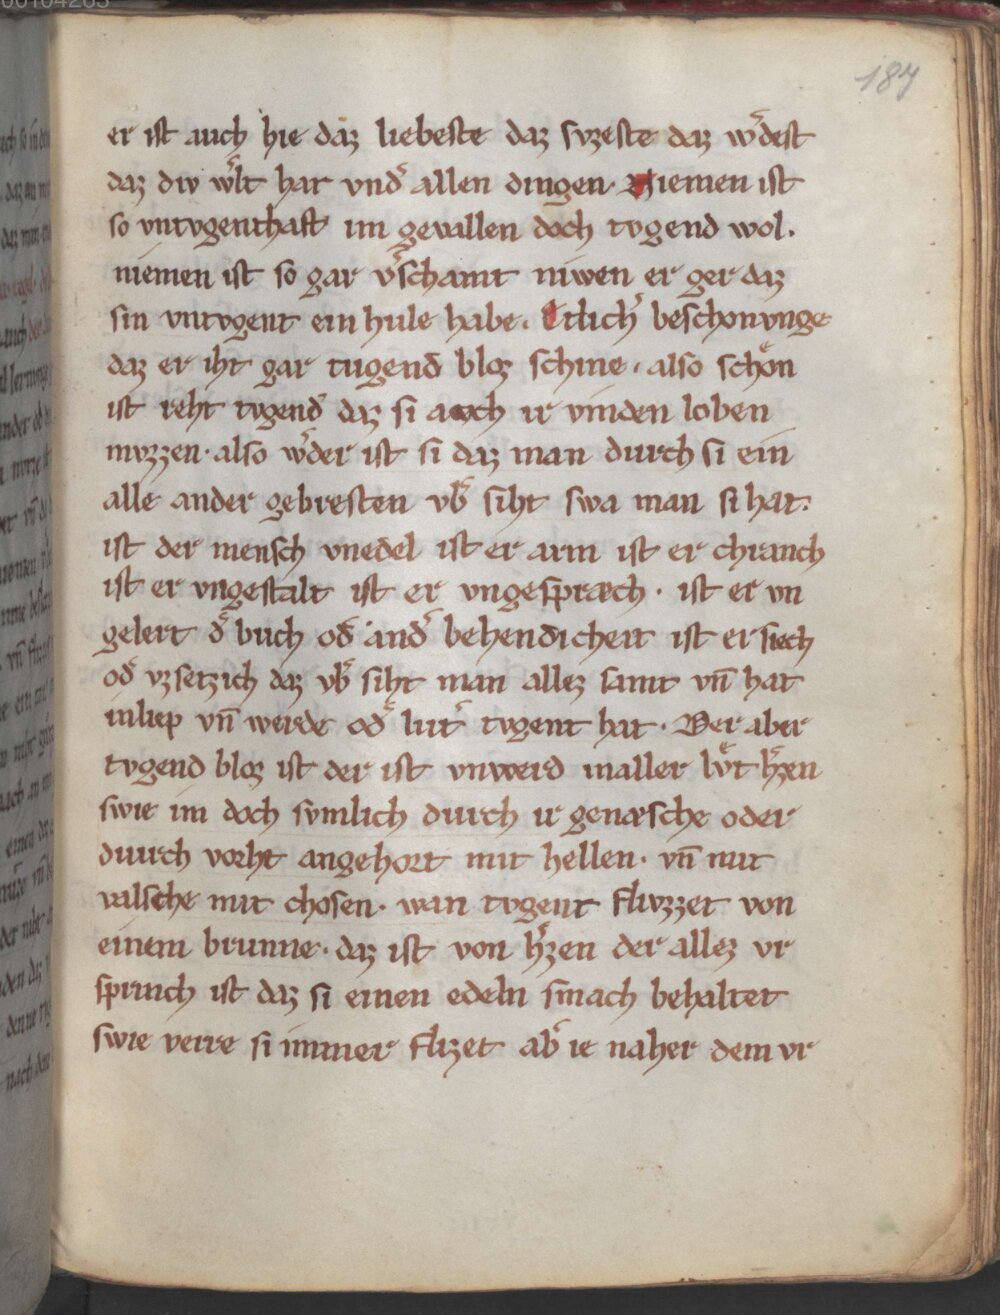 187
er ist auch hie daz liebeste daz svzeste daz w̾dest
daz div w̾lt hat vnd̾ allen dingen. Niemen ist
so vntvgenthaft im geuallen doch tvgend wol.
niemen ist so gar v̾schamt niwen er ger daz
sin vntvgent ein hule habe. Etlich̾ beschonvnge
daz er iht gar tugend bloz schine. also schoͤn
ist reht tvgend̾ daz si auch ir vinden loben
mvzzen. also w̾der ist si daz man durch si ein
alle ander gebresten vb̾ siht swa man si hat.
ist der mensch vnedel ist er arm ist er chranch
ist er vngestalt ist er vngespræch. ist er vn
gelert d̾ buch od̾ and̾ behendicheit ist er siech
od̾ vzsetzich daz vb̾ siht man allez samt vn̄ hat
inliep vn̄ werde od̾ lut̾ tvgent hat. Der aber
tvgend bloz ist der ist vnwerd inaller lvͤt h̾zen
swie im doch svmlich durch ir genæsche oder
duurch vorht angehort mit hellen. vn̄ mit
valsche mit chosen. wan tvgent flivzzet von
einem brunne. daz ist von h̾zen der allez vr
sprinch ist daz si einen edeln smach behaltet
swie verre si immer flizet ab̾ ie naher dem vr